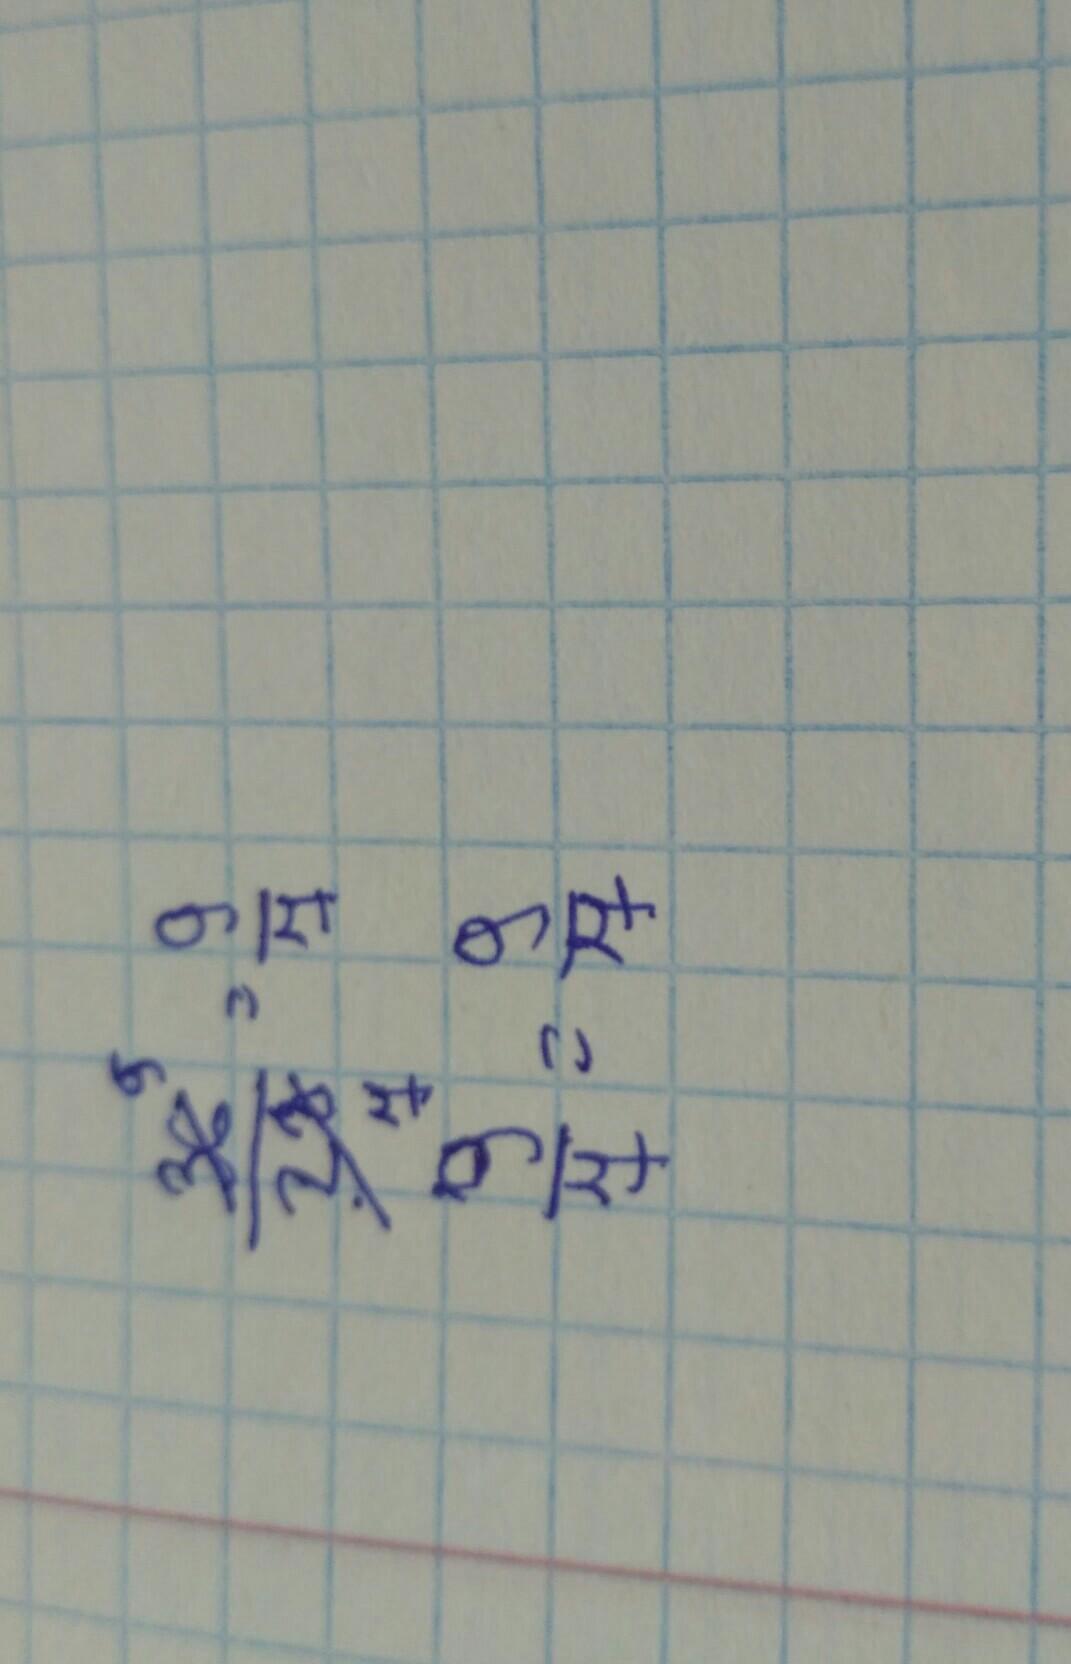 36/28 = 9/7
9/7 = 9/7